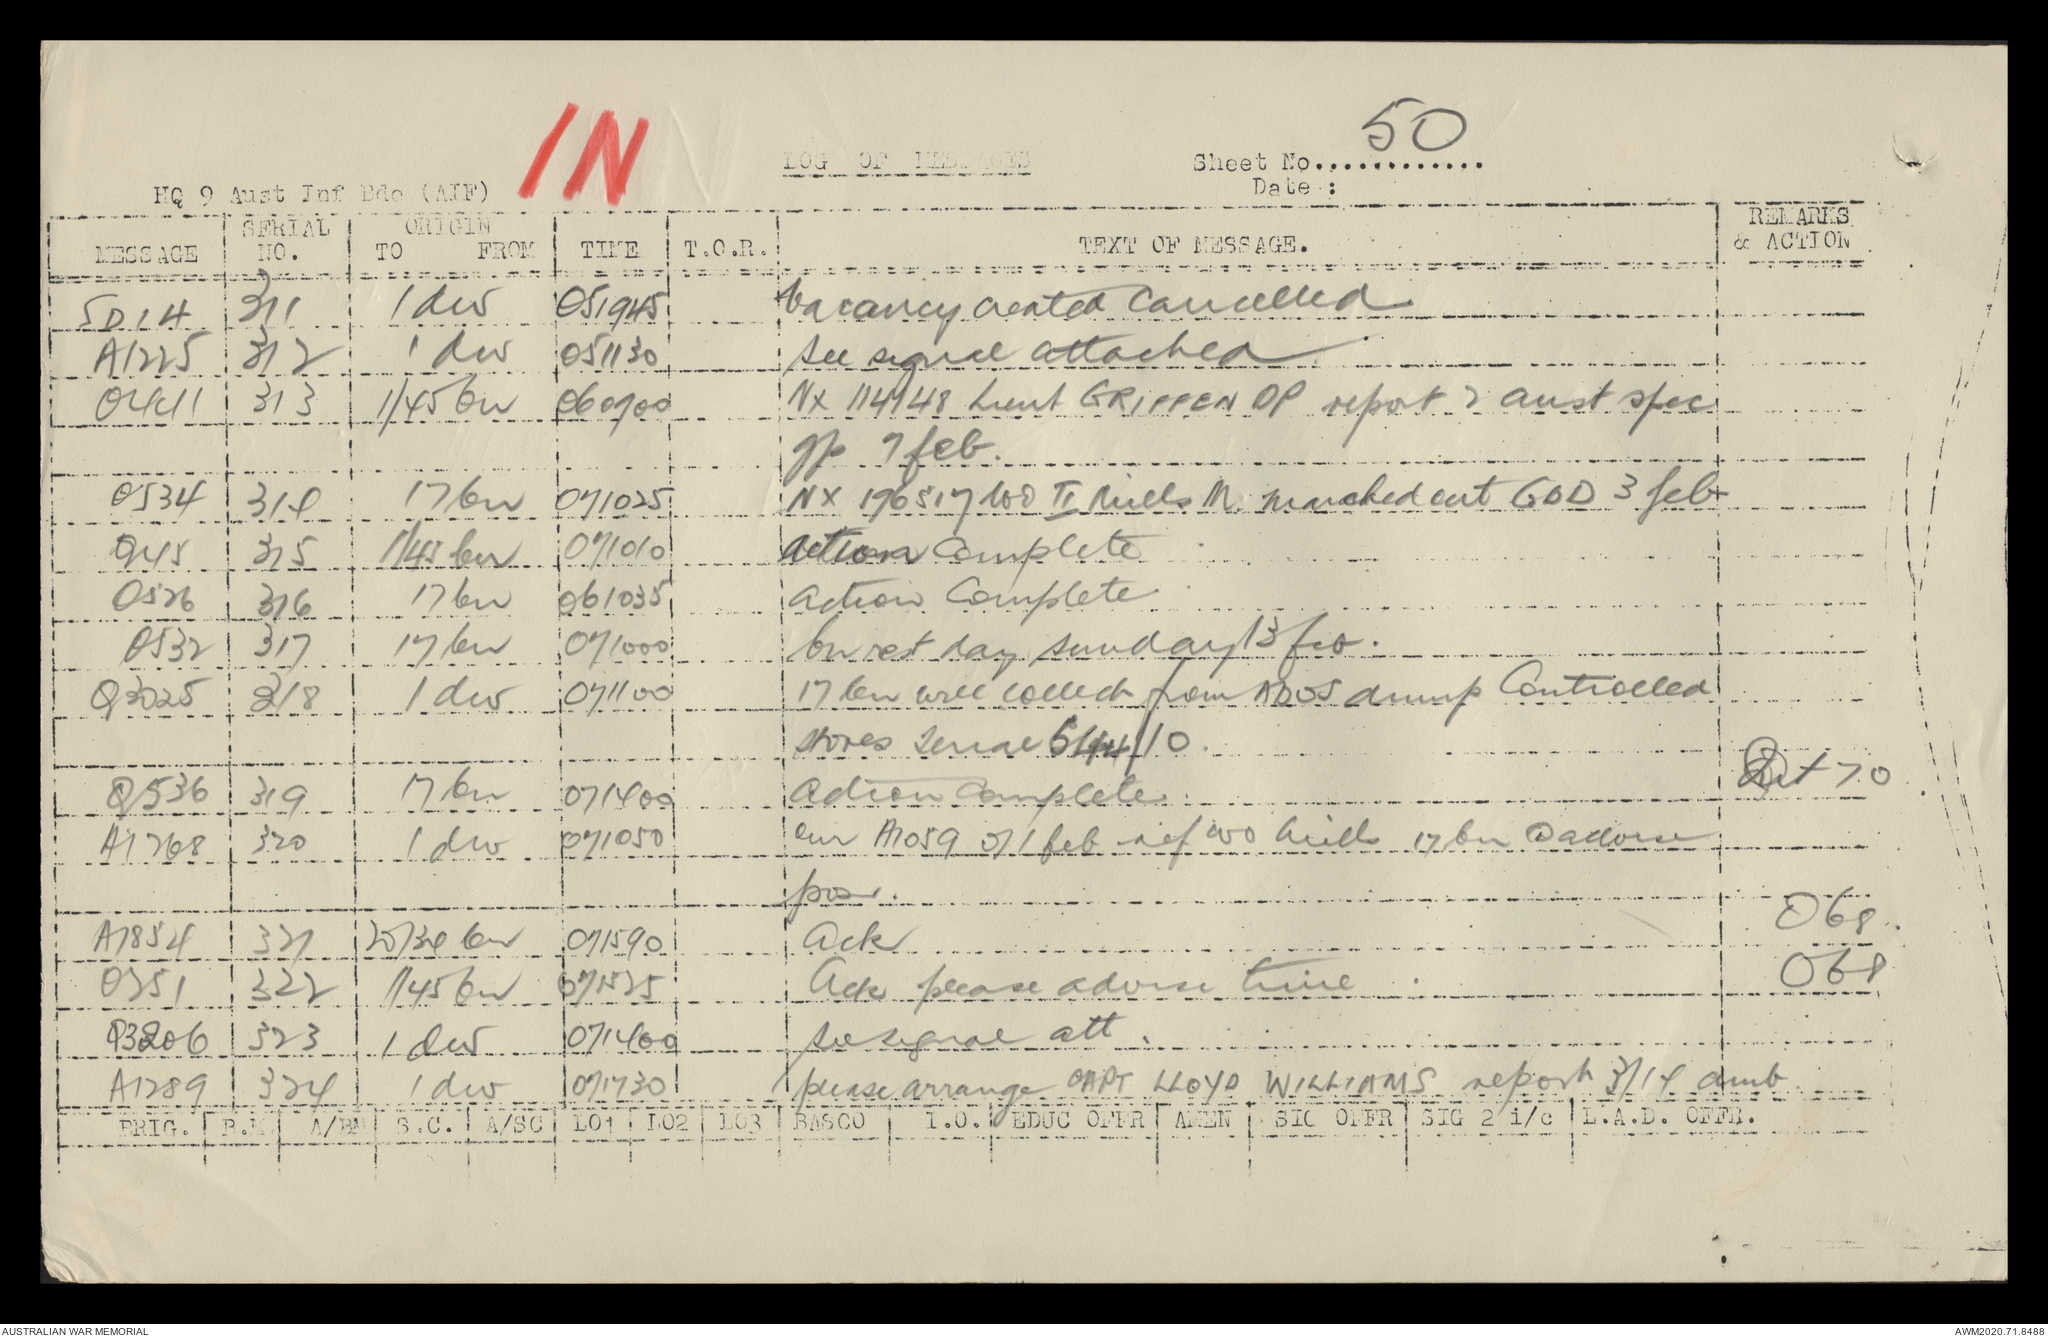 IN
LOG OF MESSAGES
Sheet No............ 50
Date :
HQ 9 Aust Inf Bde (AIF)
MESSAGE SERIAL NO. ORIGIN TO FROM TIME T.O.R. TEXT OF MESSAGE. REMARKS & ACTION
SD14 311 1 div 051945 Vacancy created cancelled
A1225 312 1 div 051130 See signal attached
O441 313 1/45 bn 060900 NX 114148 Lieut GRIPPEN OP report 2 aust spec
gp 7 feb.
O534 314 17 bn 071025 NX 196517 WO II Mills M. marched out GDD 3 feb
945 315 1/45 bn 071010 Action Complete
O526 316 17 bn 061035 Action Complete
O532 317 17 bn 071000 bn rest day sunday 13 feb.
Q3025 318 1 div 071100 17 bn will collect from ADOS dump Controlled
stores serial 5444/10.
Q536 319 17 bn 071400 Action Complete. 70
A1268 320 1 div 071050 our A1059 of 1 feb ref WO Mills 17 bn advise
posn.
A1854 321 20/34 bn 071590 Ack O68.
O251 322 1/45 bn 071525 Ack please advise time. O68
Q3206 323 1 div 071400 See signal att.
A1289 324 1 div 071730 please arrange CAPT LLOYD WILLIAMS report 3/14 amb.
BRIG. B.M. A/BM S.C. A/SC LO1 LO2 LO3 BASCO I.O. EDUC OFFR AMEN SIG OFFR SIG 2 i/c L.A.D. OFFR.
AUSTRALIAN WAR MEMORIAL AWM2020.71.8488